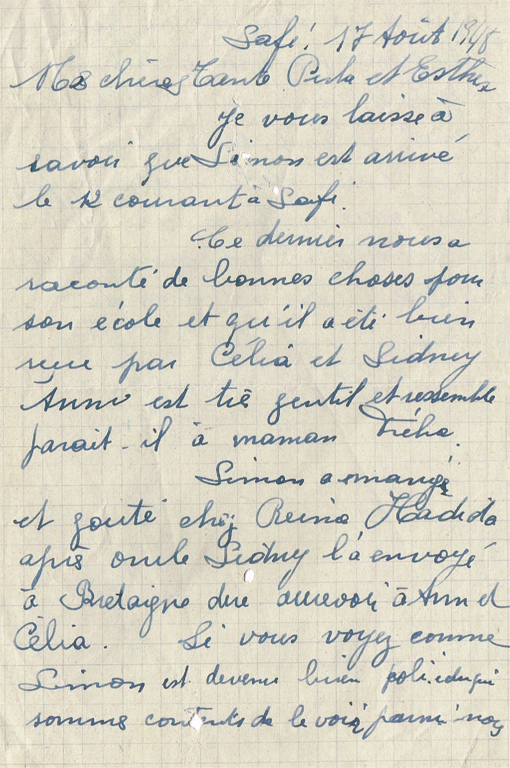 Safi! 17 Août 1948
Mes chères Tante Perla et Esther
Je vous laisse à
savoir que Simon est arrivé
le 12 courant à Safi.
Ce dernier nous a
raconté de bonnes choses pour
son école et qu'il a été bien
reçu par Célia et Sidney
Ann est très gentil et ressemble
parait-il à maman Fréha.
Simon a mangé
et gouté chez Reina Hadida
après oncle Sidney l'a envoyé
à Bretaigne dire aurevoir à Ann et
Célia. Si vous voyez comme
Simon est devenu bien poli.
somme contents de le voir parmi nous